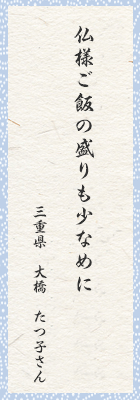 仏様ご飯の盛りも少なめに
三重県 大橋 たつ子さん